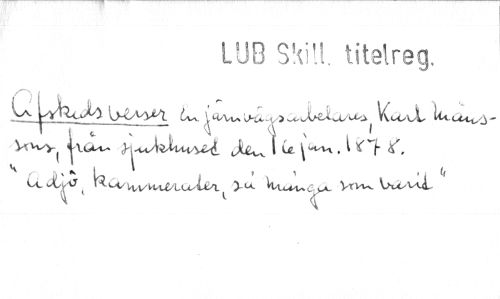 LUB Skill. titelreg.
Afskedsverser En järnvägsarbetares, Karl Måns-
sons, från sjukhuset den 16 jan. 1878.
"Adjö, kammerater, så många som varit"